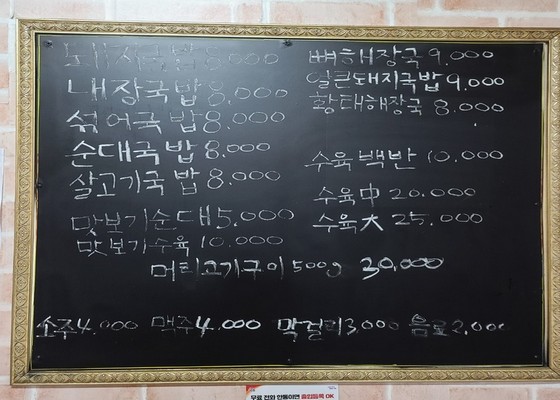 돼지국밥 8,000
내장국밥 8,000
섞어국밥 8,000
순대국밥 8,000
살고기국밥 8,000
맛보기순대 5,000
맛보기수육 10,000
뼈해장국 9,000
얼큰돼지국밥 9,000
황태해장국 8,000
수육백반 10,000
수육中 20,000
수육大 25,000
머리고기구이 500g 30,000
소주4,000 맥주4,000 막걸리3,000 음료2,000
무료 전화 한통이면 출입등록 OK